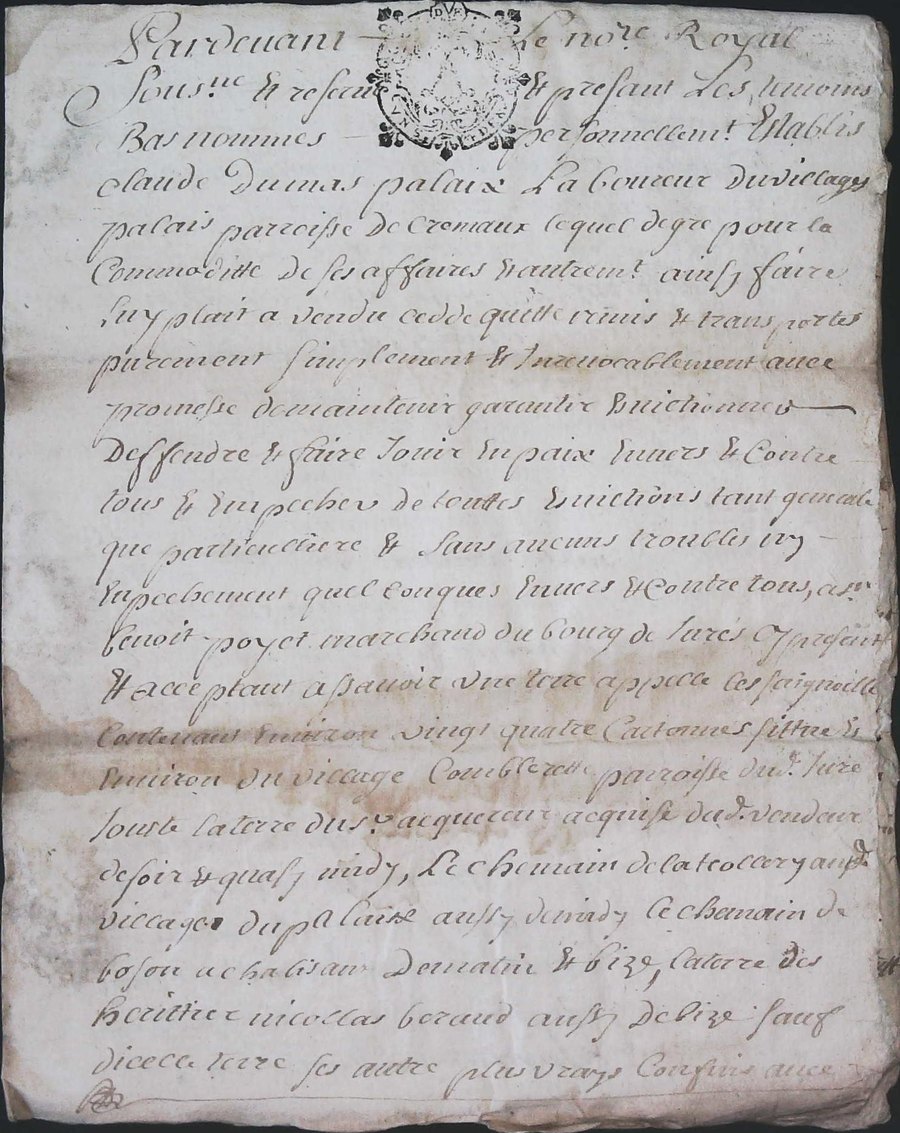 Pardevant Le no.re Royal
Sous.ne & & presant Les temoins
Bas nommes personnellem.t Establis
Claude Dumas palaix Laboureur Du village
palais parroisse De Cremaux lequel de gre pour la
Commoditte De ses affaires & autrem.t ainsy faire
Luy plait a vendu cedde quitte remis & transportes
purement simplement & Irrevocablement avec
promesse de maintenir garantir Evictionner
Deffendre & faire Jouir En paix Envers & Contre
tous & Empecher de touttes Evictions tant generale
que particulliere & sans aucuns troubles ny
Enpechement quel conques Envers & Contre tous, a s.r
benoit poyet marchand du bourg de Jurés Cy presant
& acceptant assavoir une terre appelle les
Contenant Environ vingt quatre Cartonnes sittue &
Environ du village Comblerette parroisse du d. Jure
Jouste la terre du s.r acquereur acquise du d. vendeur
de soir & quasy midy, Le chemain de la au d.
village du aussy de midy le chemain de
boson a De matin & bize, la terre des
herittier nicollas beraud aussy De bize sauf
dicelle terre ses autre plus vrays Confins avec